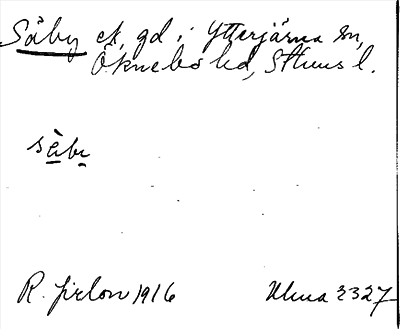 Säby ek, gd i Ytterjärna sn,
Öknebo hd, Sthlms l.
sä̀bı
R. 1916
Ulma 2327